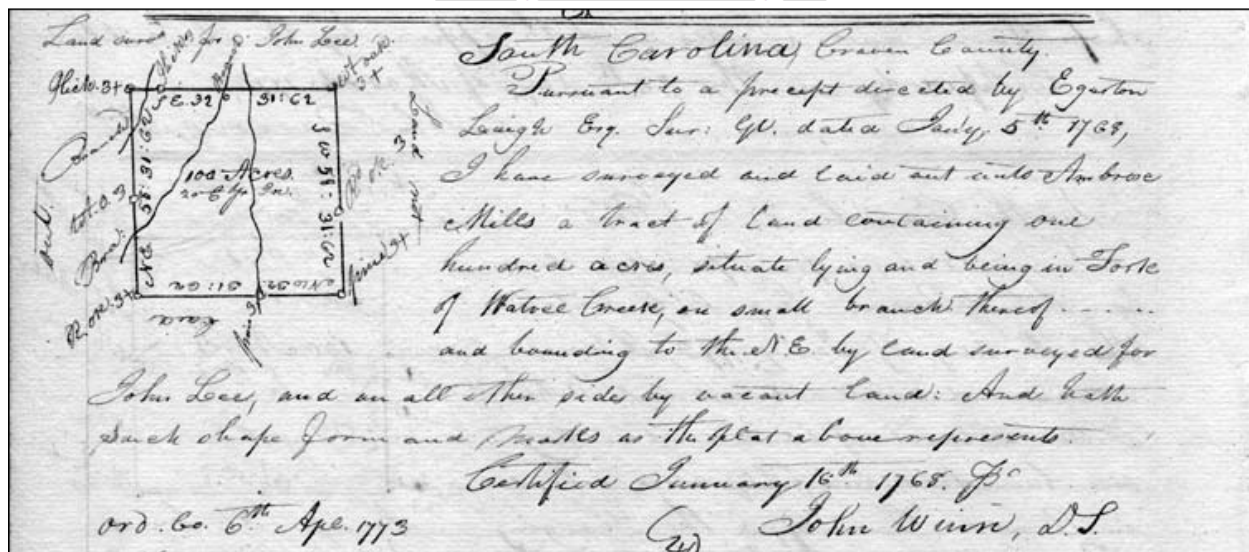 Land surd. for John Lee.
Hick. 3+
Hick 3
S E. 32 31:62
3+
Branch
100 Acres
Land not
Bra:
NE 58: 31:62
S W 58: 31:62
pine 3+
R. ok. 3+
31:62 NW 32
South Carolina, Craven County.
Pursuant to a precept directed by Egerton
Leigh Esq. Sur: Gl. dated Jany. 5th 1768,
I have surveyed and laid out unto Ambrose
Mills a tract of land containing one
hundred acres, situate lying and being in Fork
of Watree Creek, on small branch thereof -----
and bounding to the N E. by land surveyed for
John Lee, and on all other sides by vacant land: And hath
such shape form and marks as the plat above represents.
Certified January 16th 1768. Pr
John Winn, D.S.
ord. Co. 6th Apl. 1773